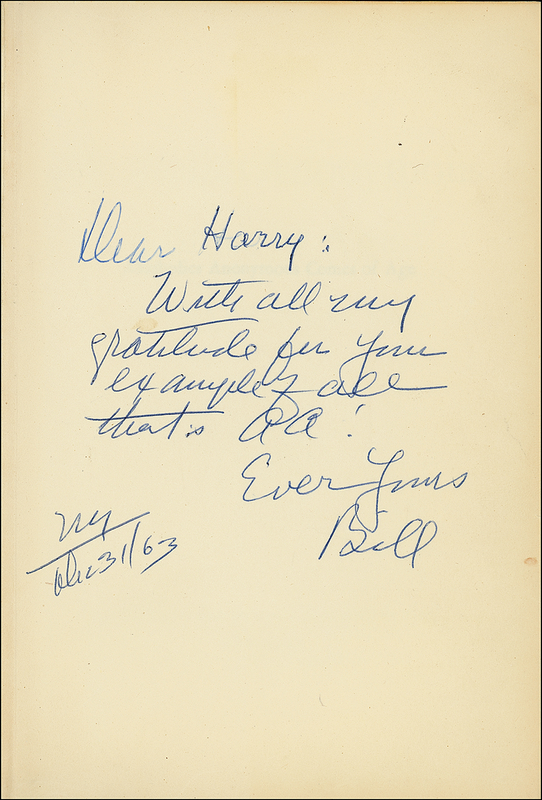 Dear Harry:
With all my
gratitude for your
example & all
that's AA!
Ever Yours
Bill
NY
Dec 31/63